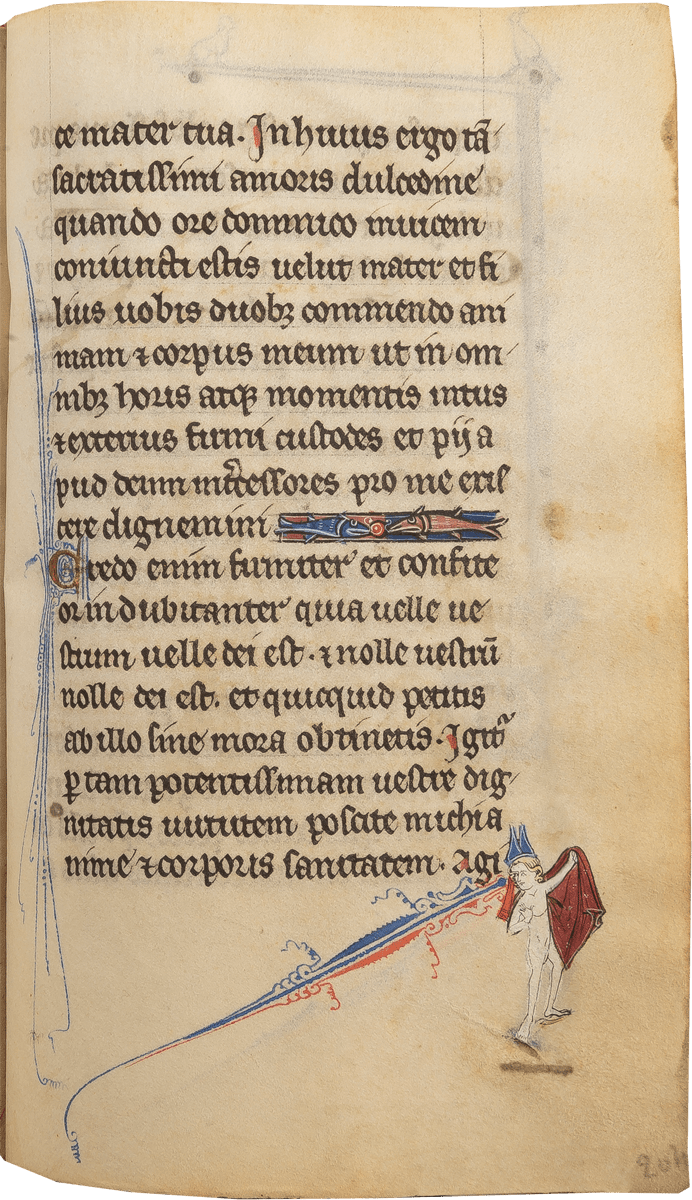 ce mater tua. In huius ergo tā
sacratissimi amoris dulcedine
quando ore dominico inuicem
coniuncti estis uelut mater et fi
lius uobis duobꝫ commendo ani
mam ⁊ corpus meum ut in om
nibꝫ horis atqꝫ momentis intus
⁊ exterius firmi custodes et pij a
pud deum int̾cessores pro me exis
tere dignemini
Credo enim firmiter et confite
or indubitanter quia uelle ue
strum uelle dei est. ⁊ nolle uestrū
nolle dei est. et quicquid petitis
ab illo sine mora obtinetis. Igit᷑
ꝑ tam potentissimam uestre dig
nitatis uirtutem poscite michi a
nime ⁊ corporis sanitatem. Agi
204